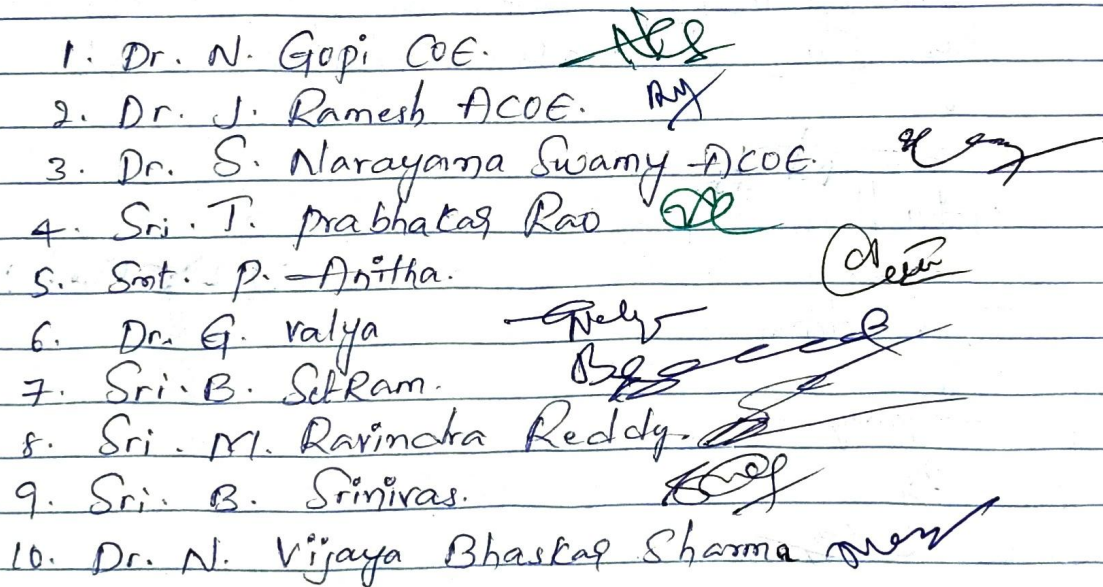 1. Dr. N. Gopi COE.
2. Dr. J. Ramesh ACOE.
3. Dr. S. Narayana Swamy ACOE.
4. Sri. T. prabhakar Rao
5. Smt. P. Anitha.
6. Dr. G. valya
7. Sri. B. SitRam.
8. Sri. M. Ravindra Reddy.
9. Sri. B. Srinivas.
10. Dr. N. Vijaya Bhaskar Sharma